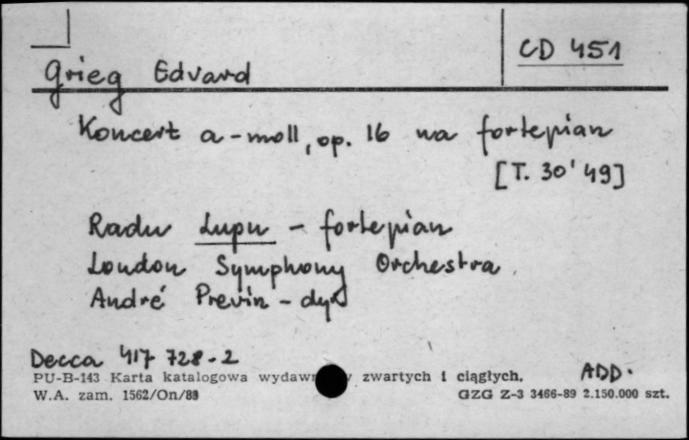 CD 451
Grieg Edvard
Koncert a-moll, op. 16 na fortepian
[T. 30'49]
Radu Lupu - fortepian
London Symphony Orchestra
André Previn - dyr
Decca 417 728-2
ADD.
PU-B-143 Karta katalogowa zwartych i ciągłych.
W.A. zam. 1562/On/89 GZG Z-3 3466-89 2.150.000 szt.